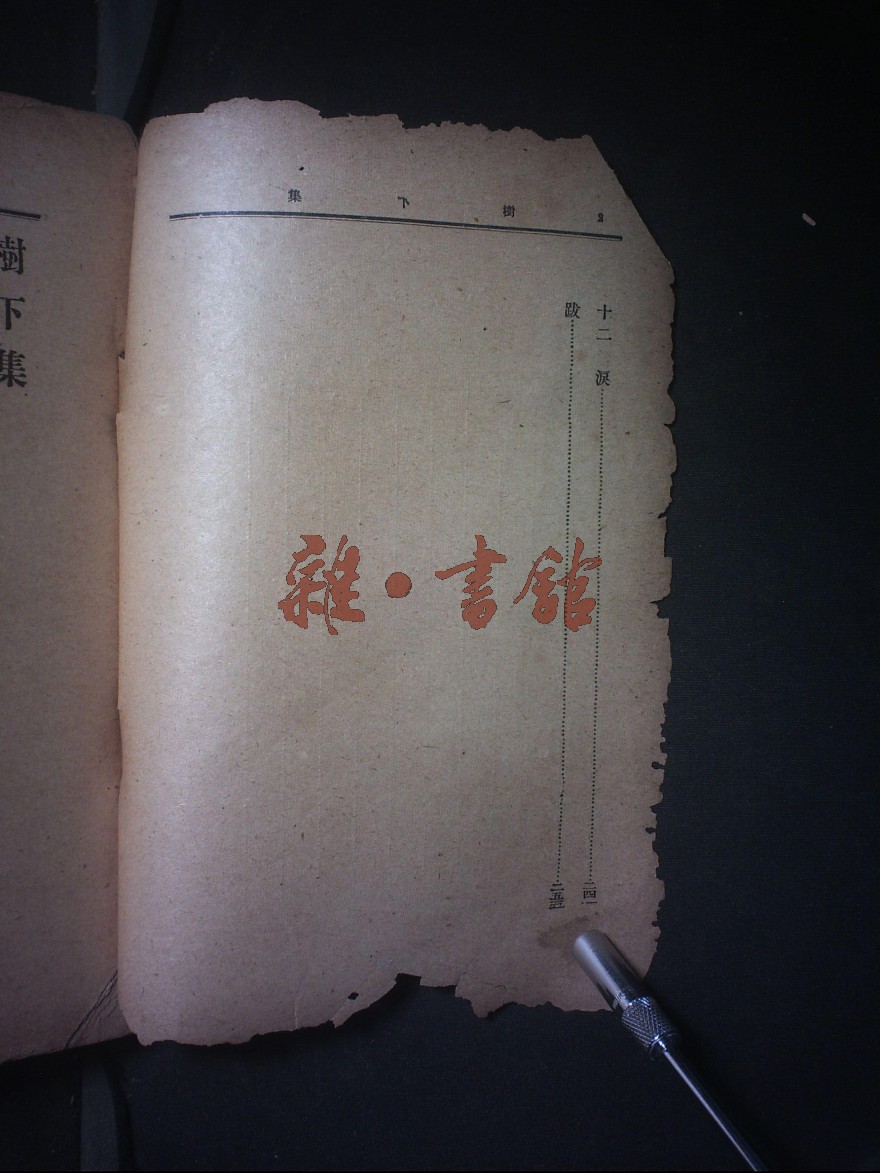 2 樹下集
十二 淚……二四一
跋……二五三
樹下集
雜·書館